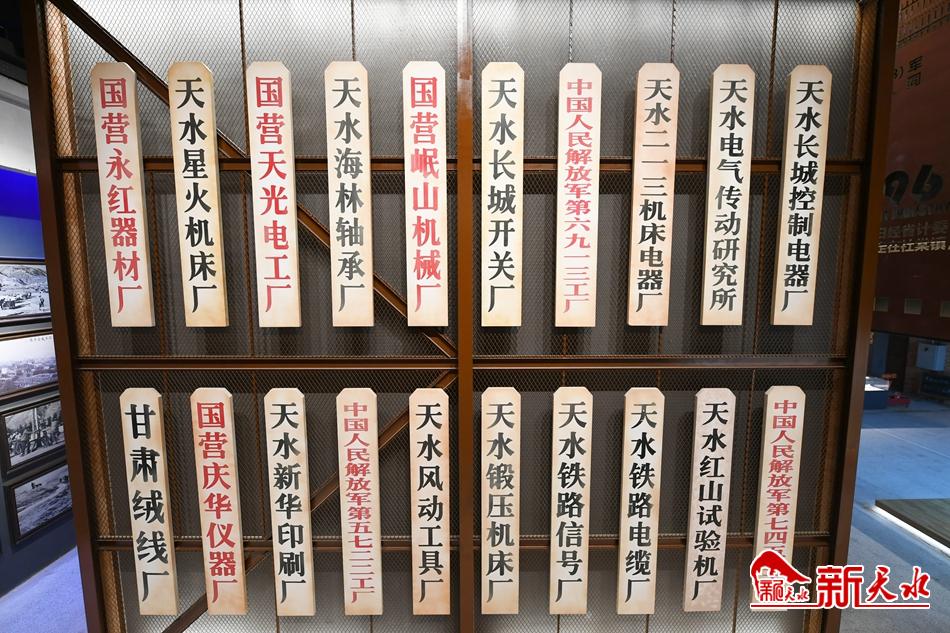 国营永红器材厂
天水星火机床厂
国营天光电工厂
天水海林轴承厂
国营岷山机械厂
天水长城开关厂
中国人民解放军第六九一三工厂
天水二一三机床电器厂
天水电气传动研究所
天水长城控制电器厂
甘肃绒线厂
国营庆华仪器厂
天水新华印刷厂
中国人民解放军第五七二二工厂
天水风动工具厂
天水锻压机床厂
天水铁路信号厂
天水铁路电缆厂
天水红山试验机厂
中国人民解放军第七四
96
新天水